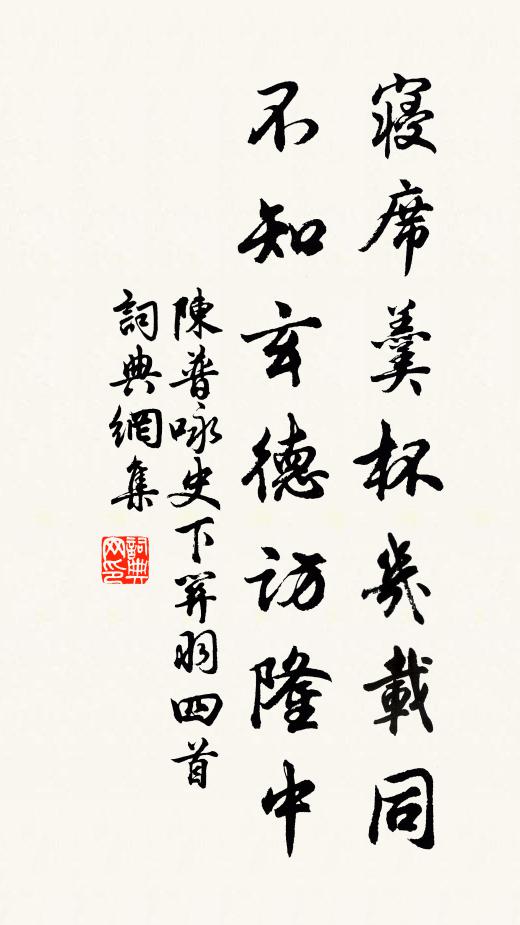 寢席羹杯幾載同
不知玄德訪隆中
陳普咏史下關羽四首
詞典網集
詞典網印